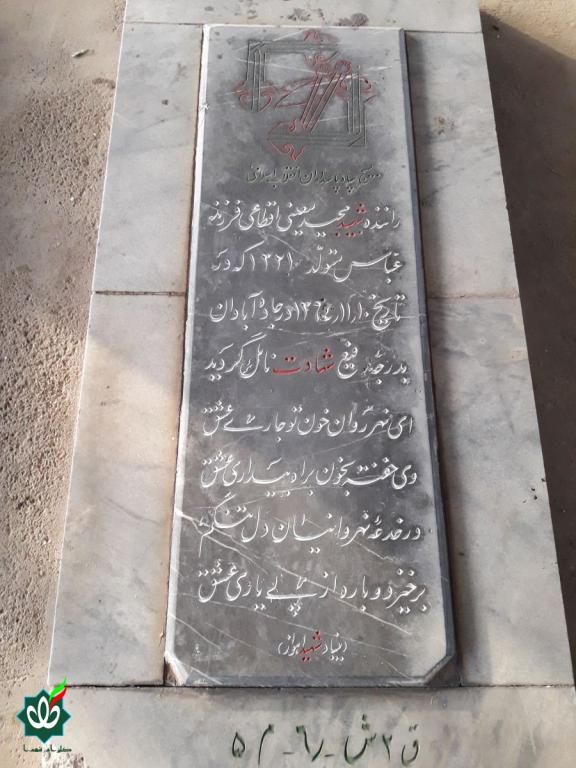 بسیج سپاه پاسداران انقلاب اسلامی
راننده شهید مجید معینی اقطاعی فرزند
عباس متولد ۱۳۲۱ که در
تاریخ ۱۰ر۱۱ر۱۳۶۰ در جاده آبادان
بدرجه رفیع شهادت نائل گردید
ای نهر روان خون تو جاری عشق
وی خفته بخون براه بیداری عشق
در خدعه نهروانیان دل تنگم
برخیز دوباره از پی یاری عشق
(بنیاد شهید اهواز)
ق ۲ ش - ر۶ - م ۵
گلزار شهدا